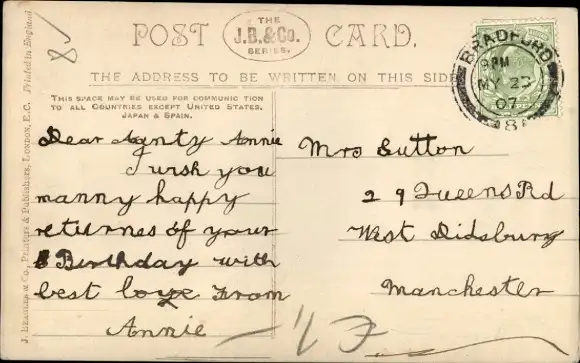 POST CARD.
THE
J.B. & Co.
SERIES.
THE ADDRESS TO BE WRITTEN ON THIS SIDE
THIS SPACE MAY BE USED FOR COMMUNICTION
TO ALL COUNTRIES EXCEPT UNITED STATES,
JAPAN & SPAIN.
J. BEAGLES & Co., Printers & Publishers, London, E.C. Printed in England
BRADFORD
9 PM
MY 23
07
8
Dear Aunty Annie
I wish you
manny happy
returnes of your
Birthday with
best love From
Annie
Mrs Sutton
29 Queens Rd
West Didsbury
Manchester